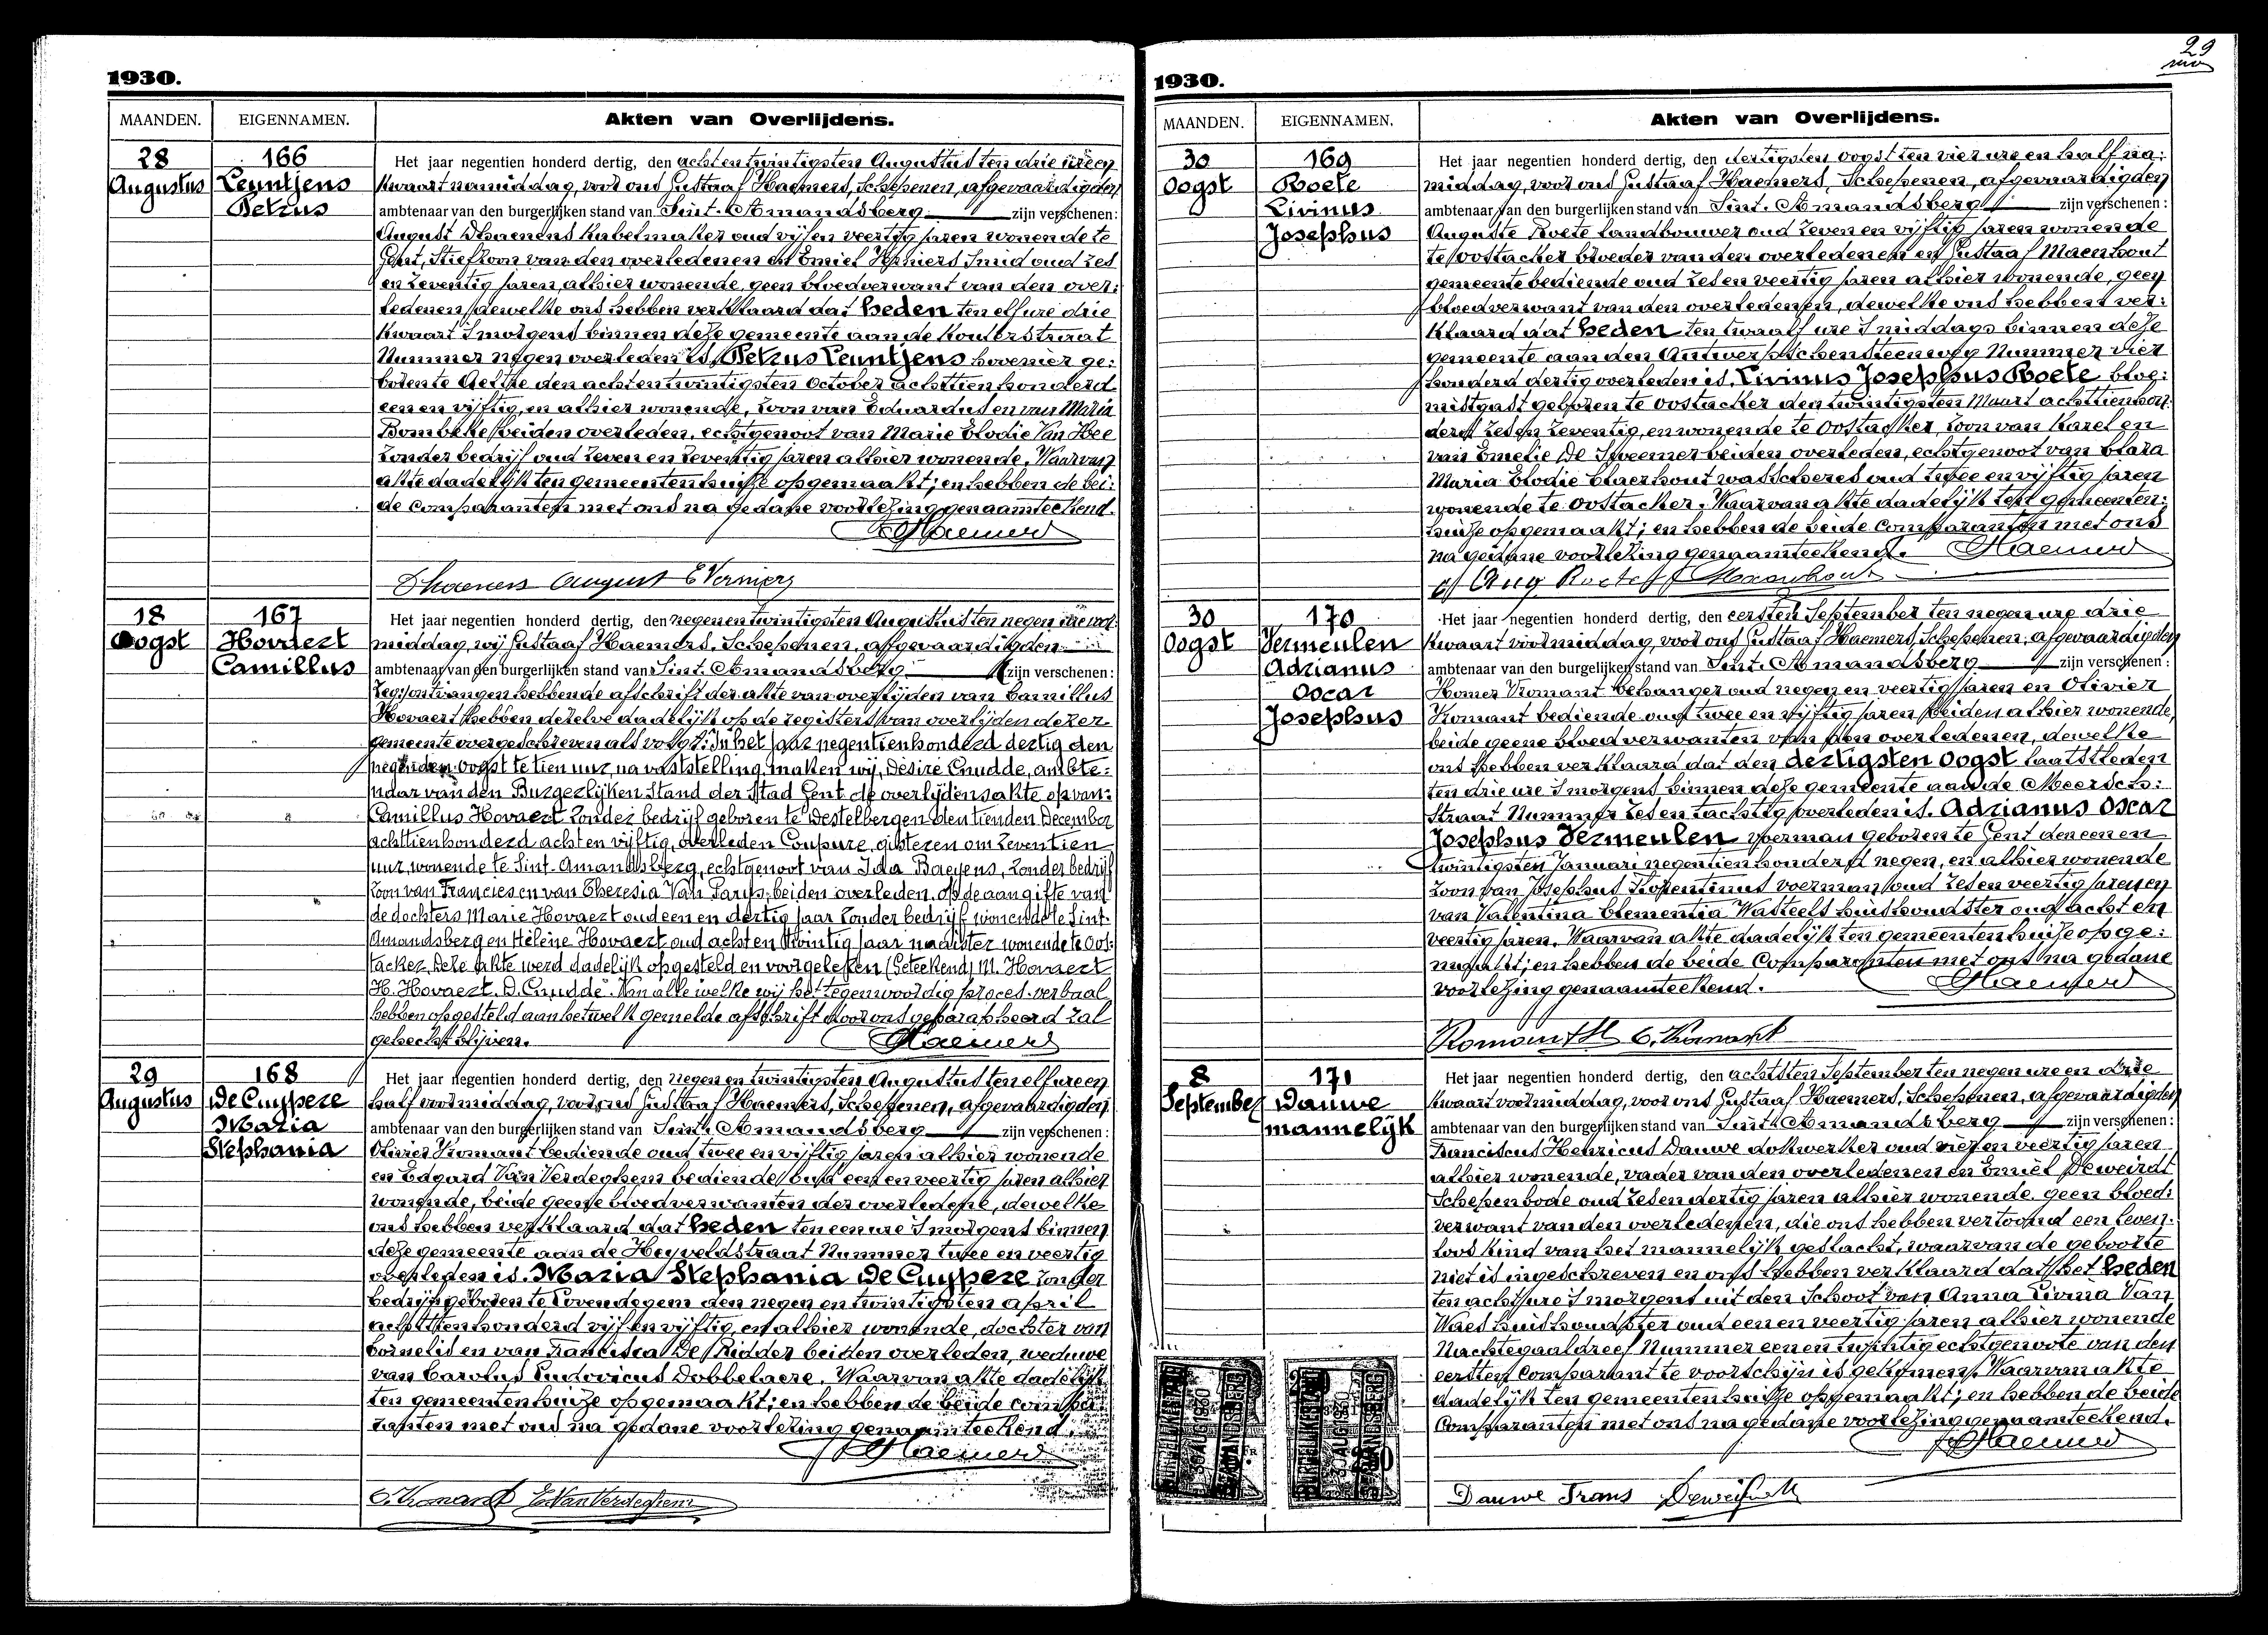 1930.
MAANDEN. EIGENNAMEN. Akten van Overlijdens.
28 166 Het jaar negentien honderd dertig, den achtentwintigsten Augustus ten drie ure een
Augustus Leuntjens kwaart namiddag, voor ons Gustaaf Haemers, Schepenen, afgevaardigden
Petrus ambtenaar van den burgerlijken stand van Sint-Amandsberg zijn verschenen:
August Dhaenens kabelmaker oud vijf en veertig jaren wonende te
Gent, Stiefzoon van den overledenen en Emiel Verniers Smid oud zes
en zeventig jaren, alhier wonende, geen bloedverwant van den over:
ledenen, dewelke ons hebben verklaard dat heden ten elf ure drie
kwaart 's morgens binnen deze gemeente aan de Kouterstraat
Nummer negen overleden is, Petrus Leuntjens hovenier ge:
boren te Aeltre den achtentwintigsten October achttienhonderd
een en vijftig, en alhier wonende, zoon van Eduardus en van Maria
Bombeke beiden overleden, echtgenoot van Marie Elodie Van Hee
zonder bedrijf oud zeven en zeventig jaren alhier wonende. Waarvan
akte dadelijk ten gemeentenhuize opgemaakt; en hebben de bei:
de comparanten met ons na gedane voorlezing genaamteekend.
GHaemers
Dhaenens August E Verniers
18 167 Het jaar negentien honderd dertig, den negenentwintigsten Augustus ten negen ure vor
Oogst Hovaert middag, wij Gustaaf Haemers, Schepenen, afgevaardigden
Camillus ambtenaar van den burgerlijken stand van Sint-Amandsberg zijn verschenen:
zeg: ontvangen hebbende afschrift der akte van overlijden van Camillus
Hovaert hebben dezelve dadelijk op de registers van overlijden dezer
gemeente overgeschreven als volgt: In het jaar negentienhonderd dertig den
negenden oogst te tien uur, na vaststelling, maken wij, Désiré Cnudde, ambte:
naar van den Burgerlijken Stand der Stad Gent de overlijdensakte op van:
Camillus Hovaert zonder bedrijf geboren te Destelbergen den tienden December
achttienhonderd achten vijftig, overleden Coupure, gisteren om zeventien
uur, wonende te Sint-Amandsberg, echtgenoot van Ida Baeyens, zonder bedrijf
zoon van Francies en van Theresia Van Parys, beiden overleden. op de aangifte van
de dochters Marie Hovaert oud een en dertig jaar zonder bedrijf wonende te Sint-
Amandsberg en Hélène Hovaert oud achten twintig jaar naaister wonende te Oos:
tacker. Deze akte werd dadelijk opgesteld en voorgelezen (Geteekend) M. Hovaert
H. Hovaert. D. Cnudde. Van alle welke wij het tegenwoordig proces-verbaal
hebben opgesteld aan hetwelk gemelde afschrift door ons geparapheerd zal
gehecht blijven. GHaemers
29 168 Het jaar negentien honderd dertig, den negen en twintigsten Augustus ten elf ure en
Augustus De Cuypere half voormiddag, voor ons Gustaaf Haemers, Schepenen, afgevaardigden
Maria ambtenaar van den burgerlijken stand van Sint-Amandsberg zijn verschenen:
Stephania Olivier Vromant bediende oud twee en vijftig jaren alhier wonende
en Edgard Van Verdeghem bediende oud een en veertig jaren alhier
wonende, beide geene bloedverwanten der overledene, dewelke
ons hebben verklaard dat heden ten een ure 's morgens binnen
deze gemeente aan de Heyveldstraat Nummer twee en veertig
overleden is. Maria Stephania De Cuypere zonder
bedrijf geboren te Lovendegem den negen en twintigsten April
achttienhonderd vijf en vijftig, en alhier wonende, dochter van
Cornelis en van Francisca De Ridder beiden overleden, weduwe
van Carolus Ludovicus Dobbelaere. Waarvan akte dadelijk
ten gemeentenhuize opgemaakt; en hebben de beide compa:
ranten met ons na gedane voorlezing genaamteekend.
GHaemers
O. Vromant E VanVerdeghem
29
1930.
MAANDEN. EIGENNAMEN. Akten van Overlijdens.
30 169 Het jaar negentien honderd dertig, den dertigsten oogst ten vier ure en half na:
Oogst Roete middag, voor ons Gustaaf Haemers, Schepenen, afgevaardigden
Livinus ambtenaar van den burgerlijken stand van Sint-Amandsberg zijn verschenen:
Josephus Auguste Roete landbouwer oud zeven en vijftig jaren wonende
te Oostacker broeder van den overledenen en Gustaaf Maenhout
gemeentebediende oud zes en veertig jaren alhier wonende, geen
bloedverwant van den overledenen, dewelke ons hebben ver:
klaard dat heden ten twaalf ure 's middags binnen deze
gemeente aan den Antwerpschensteenweg Nummer vier
honderd dertig overleden is, Livinus Josephus Roete bloe:
mistgast geboren te Oostacker den twintigsten Maart achttienhon:
derd zes en zeventig, en wonende te Oostacker zoon van Karel en
van Emelie De Sweemer beiden overleden, echtgenoot van Clara
Maria Elodie Claerhout waschteres oud twee en vijftig jaren
wonende te Oostacker. Waarvan akte dadelijk ten gemeenten:
huize opgemaakt; en hebben de beide comparanten met ons
na gedane voorlezing genaamteekend. GHaemers
Aug Roete G Maenhout
30 170 Het jaar negentien honderd dertig, den eersten September ten negen ure drie
Oogst Vermeulen kwaart voormiddag, voor ons Gustaaf Haemers, Schepenen, afgevaardigden
Adrianus ambtenaar van den burgelijken stand van Sint-Amandsberg zijn verschenen:
Oscar Homer Vromant behanger oud negen en veertig jaren en Olivier
Josephus Vromant bediende oud twee en vijftig jaren beiden alhier wonende,
beide geene bloedverwanten van den overledenen, dewelke
ons hebben verklaard dat den dertigsten Oogst laatstleden
ten drie ure 's morgens binnen deze gemeente aan de Meersch:
straat Nummer zes en tachtig overleden is. Adrianus Oscar
Josephus Vermeulen voerman geboren te Gent den een en
twintigsten Januari negentienhonderd negen, en alhier wonende
zoon van Josephus Florentinus voerman oud zes en veertig jaren en
van Valentina Clementia Wasteels huishoudster oud acht en
veertig jaren. Waarvan akte dadelijk ten gemeentenhuize opge:
maakt; en hebben de beide comparanten met ons na gedane
voorlezing genaamteekend. GHaemers
Vromant H O. Vromant
8 171 Het jaar negentien honderd dertig, den achtsten September ten negen ure en drie
September Dauwe kwaart voormiddag, voor ons Gustaaf Haemers, Schepenen, afgevaardigden
mannelijk ambtenaar van den burgerlijken stand van Sint-Amandsberg zijn verschenen:
Franciscus Henricus Dauwe dokwerker oud vier en veertig jaren
alhier wonende, vader van den overledenen en Emiel Deweirdt
Schepenbode oud zes en dertig jaren alhier wonende. geen bloed:
verwant van den overledenen, die ons hebben vertoond een leven:
loos kind van het mannelijk geslacht, waarvan de geboorte
niet is ingeschreven en ons hebben verklaard dat het heden
ten acht ure 's morgens uit den schoot van Anna Livina Van
Waes huishoudster oud een en veertig jaren alhier wonende
Nachtegaaldreef Nummer een en twintig echtgenote van den
eersten comparant te voorschijn is gekomen. Waarvan akte
dadelijk ten gemeentenhuize opgemaakt; en hebben de beide
comparanten met ons na gedane voorlezing genaamteekend.
GHaemers
Dauwe Frans Deweirdt